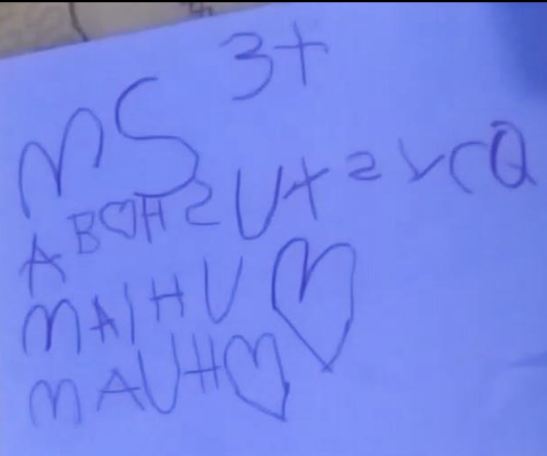 3+
MS
A B♡H2UX=YCQ
MAIHU♡
MAUH♡